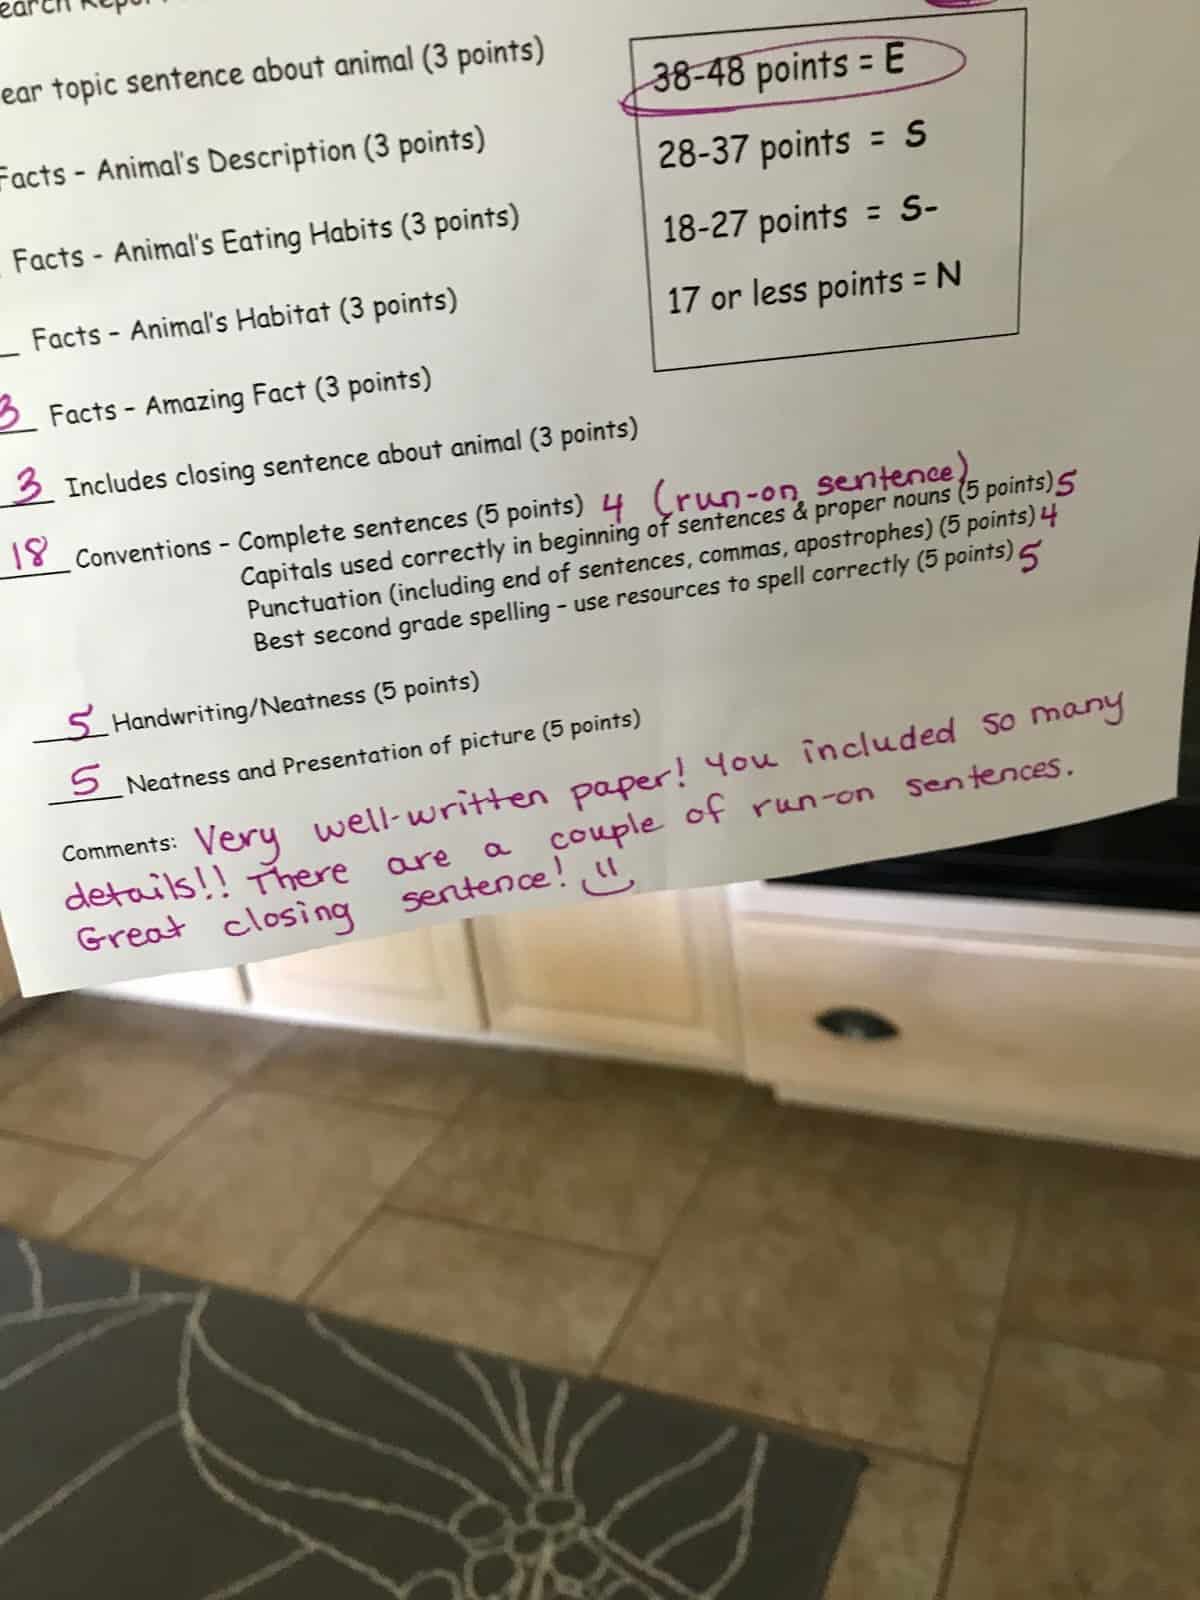 ear topic sentence about animal (3 points)
Facts - Animal's Description (3 points)
Facts - Animal's Eating Habits (3 points)
Facts - Animal's Habitat (3 points)
3 Facts - Amazing Fact (3 points)
3 Includes closing sentence about animal (3 points)
18 Conventions - Complete sentences (5 points) 4 (run-on sentence)
Capitals used correctly in beginning of sentences & proper nouns (5 points) 5
Punctuation (including end of sentences, commas, apostrophes) (5 points) 4
Best second grade spelling - use resources to spell correctly (5 points) 5
5 Handwriting/Neatness (5 points)
5 Neatness and Presentation of picture (5 points)
Comments: Very well-written paper! You included so many
details!! There are a couple of run-on sentences.
Great closing sentence!
38-48 points = E
28-37 points = S
18-27 points = S-
17 or less points = N